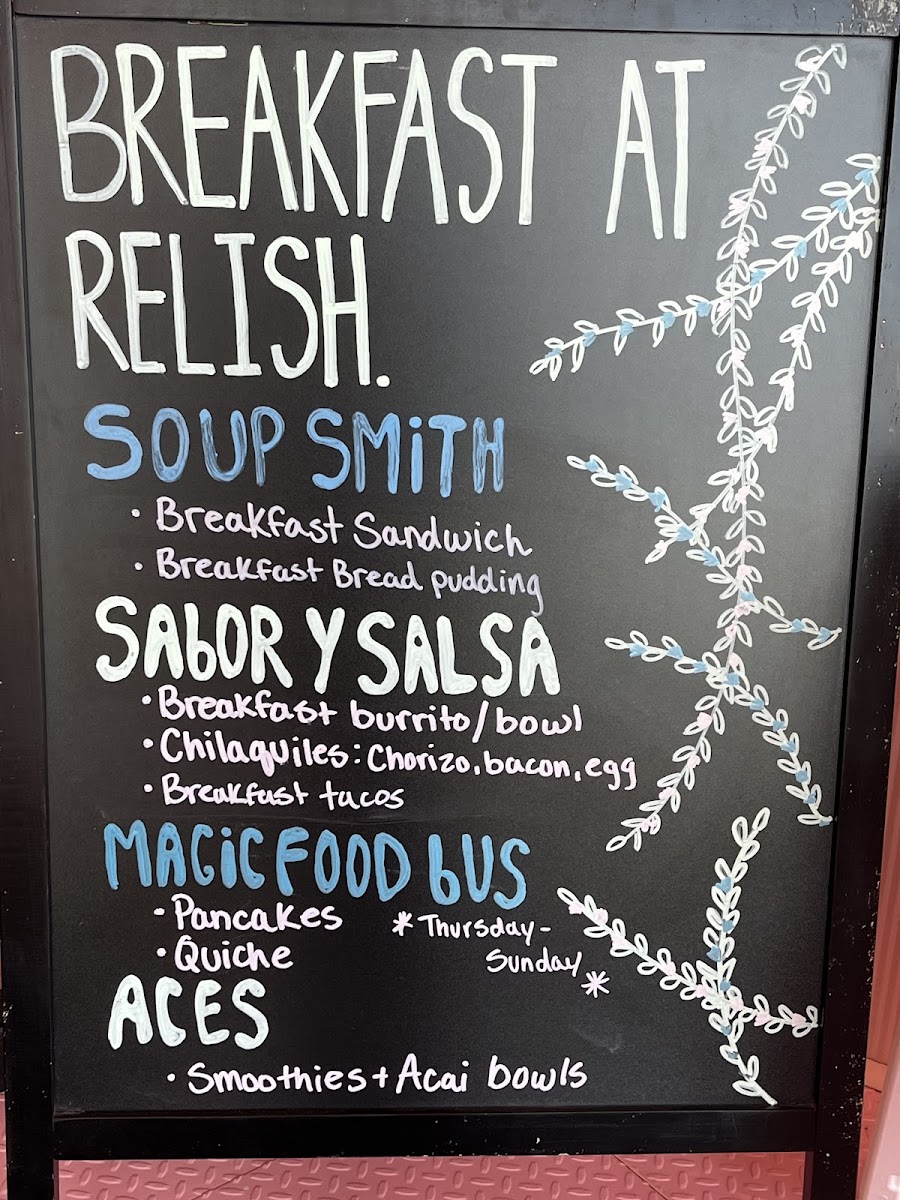 BREAKFAST AT
RELISH.
SOUP SMiTH
• Breakfast Sandwich
• Breakfast Bread pudding
SAbOR Y SALSA
• Breakfast burrito/bowl
• Chilaquiles: Chorizo, bacon, egg
• Breakfast tacos
MAGiC FOOD bUS
• Pancakes
• Quiche
* Thursday -
Sunday *
ACES
• Smoothies + Acai bowls